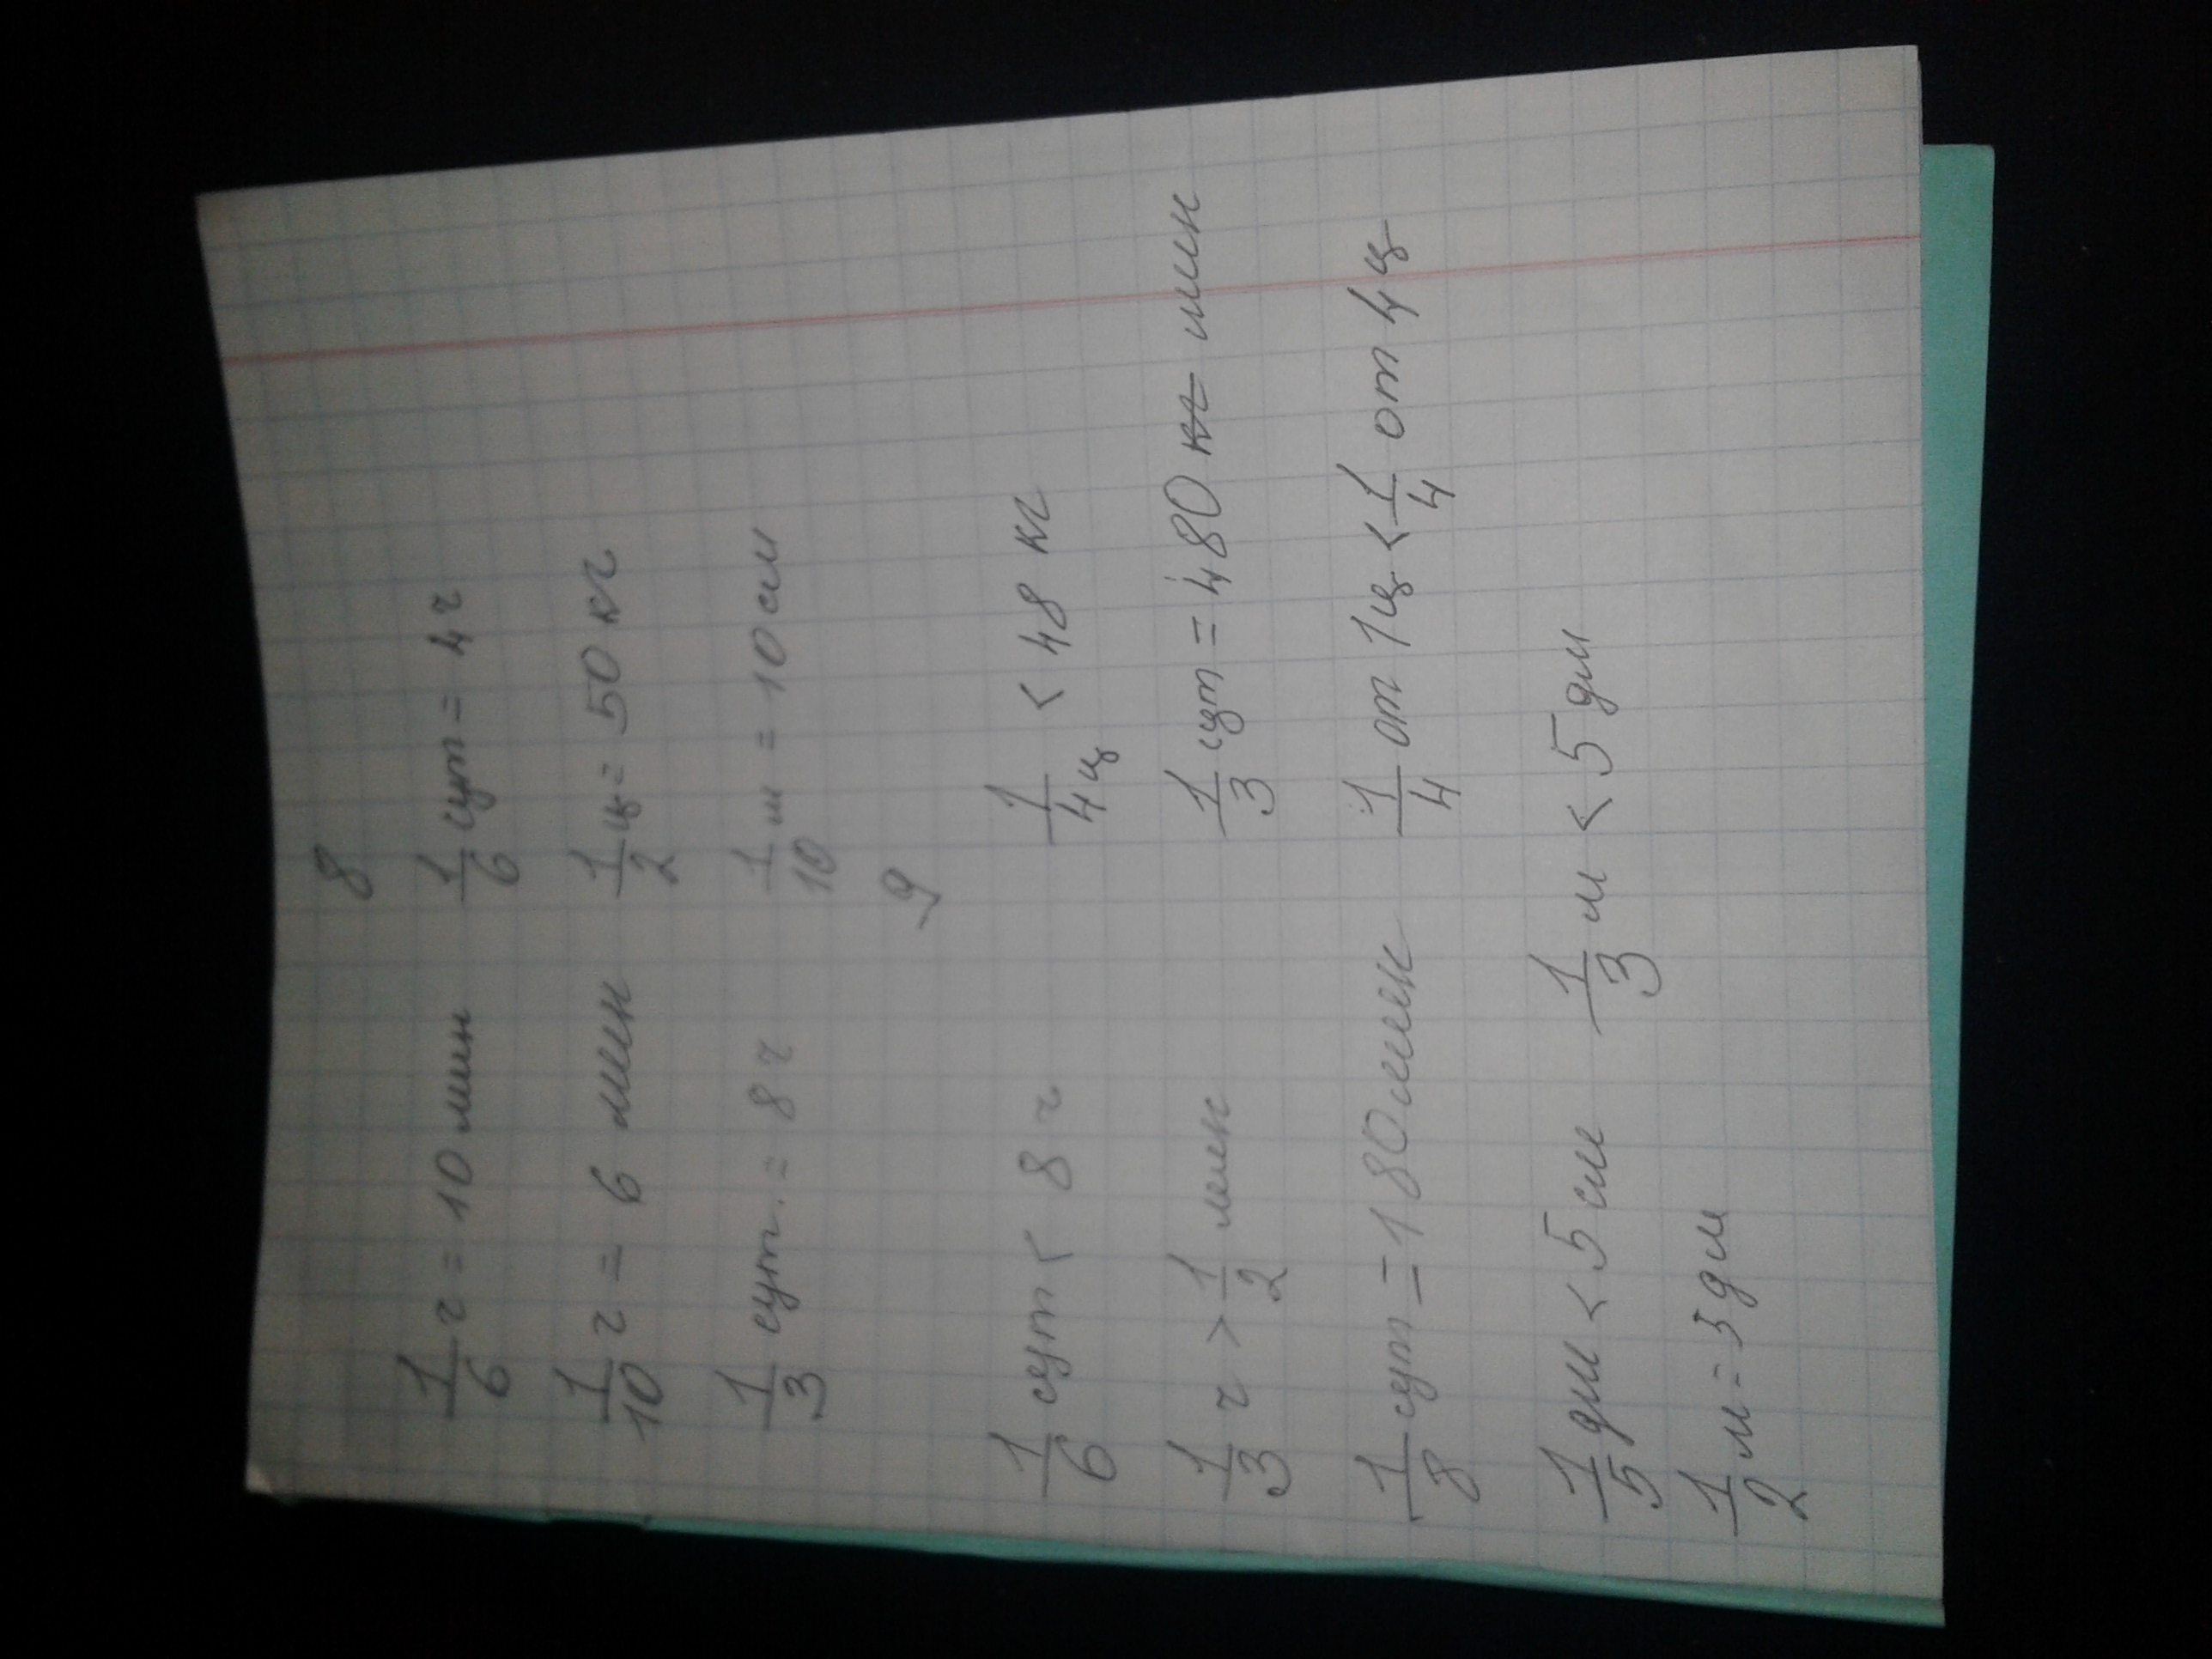 8
1/6 ч = 10 мин 1/6 сут = 4 ч
1/10 ч = 6 мин 1/2 ц = 50 кг
1/3 сут. = 8 ч 1/10 м = 10 см
9
1/6 сут < 8 ч 1/4 ц < 48 кг
1/3 ч > 1/2 мин 1/3 сут = 480 кг мин
1/8 сут = 180 мин 1/4 от 1ц < 1/4 от 4ц
1/5 дм < 5 см 1/3 м < 5 дм
1/2 м = 5 дм